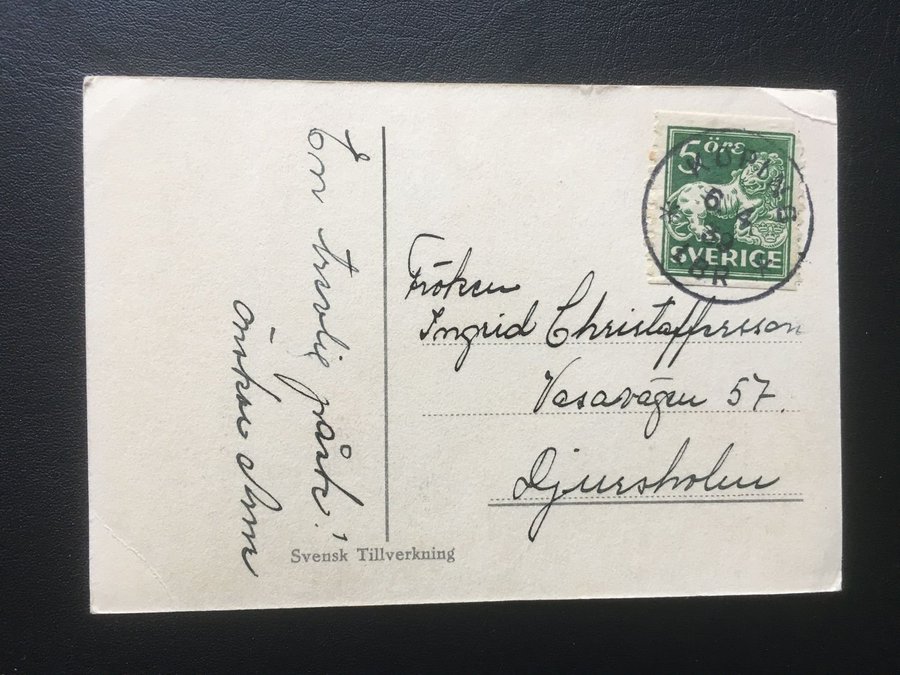 En trevlig påsk!
önskar
5 öre
SVERIGE
KÖPING
6 4
Fröken
Ingrid Christoffersson
Vasavägen 57.
Djursholm
Svensk Tillverkning